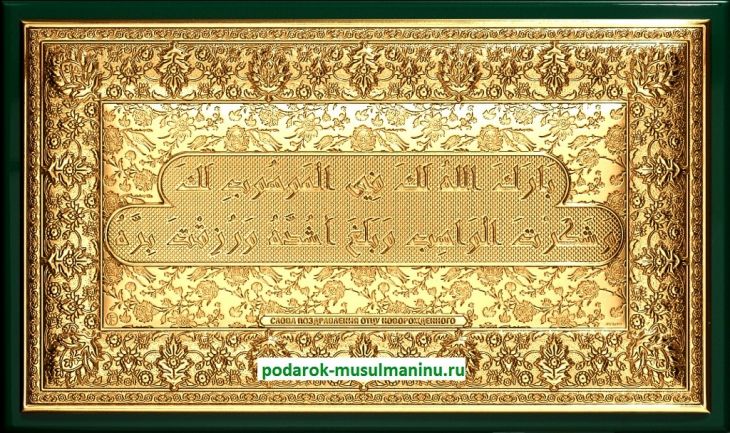 بَارَكَ اللهُ لَكَ فِي الْمَوْهُوبِ لَكَ
وَشَكَرْتَ الْوَاهِبَ وَبَلَغَ أَشُدَّهُ وَرُزِقْتَ بِرَّهُ
СЛОВА ПОЗДРАВЛЕНИЯ ОТЦУ НОВОРОЖДЕННОГО
podarok-musulmaninu.ru